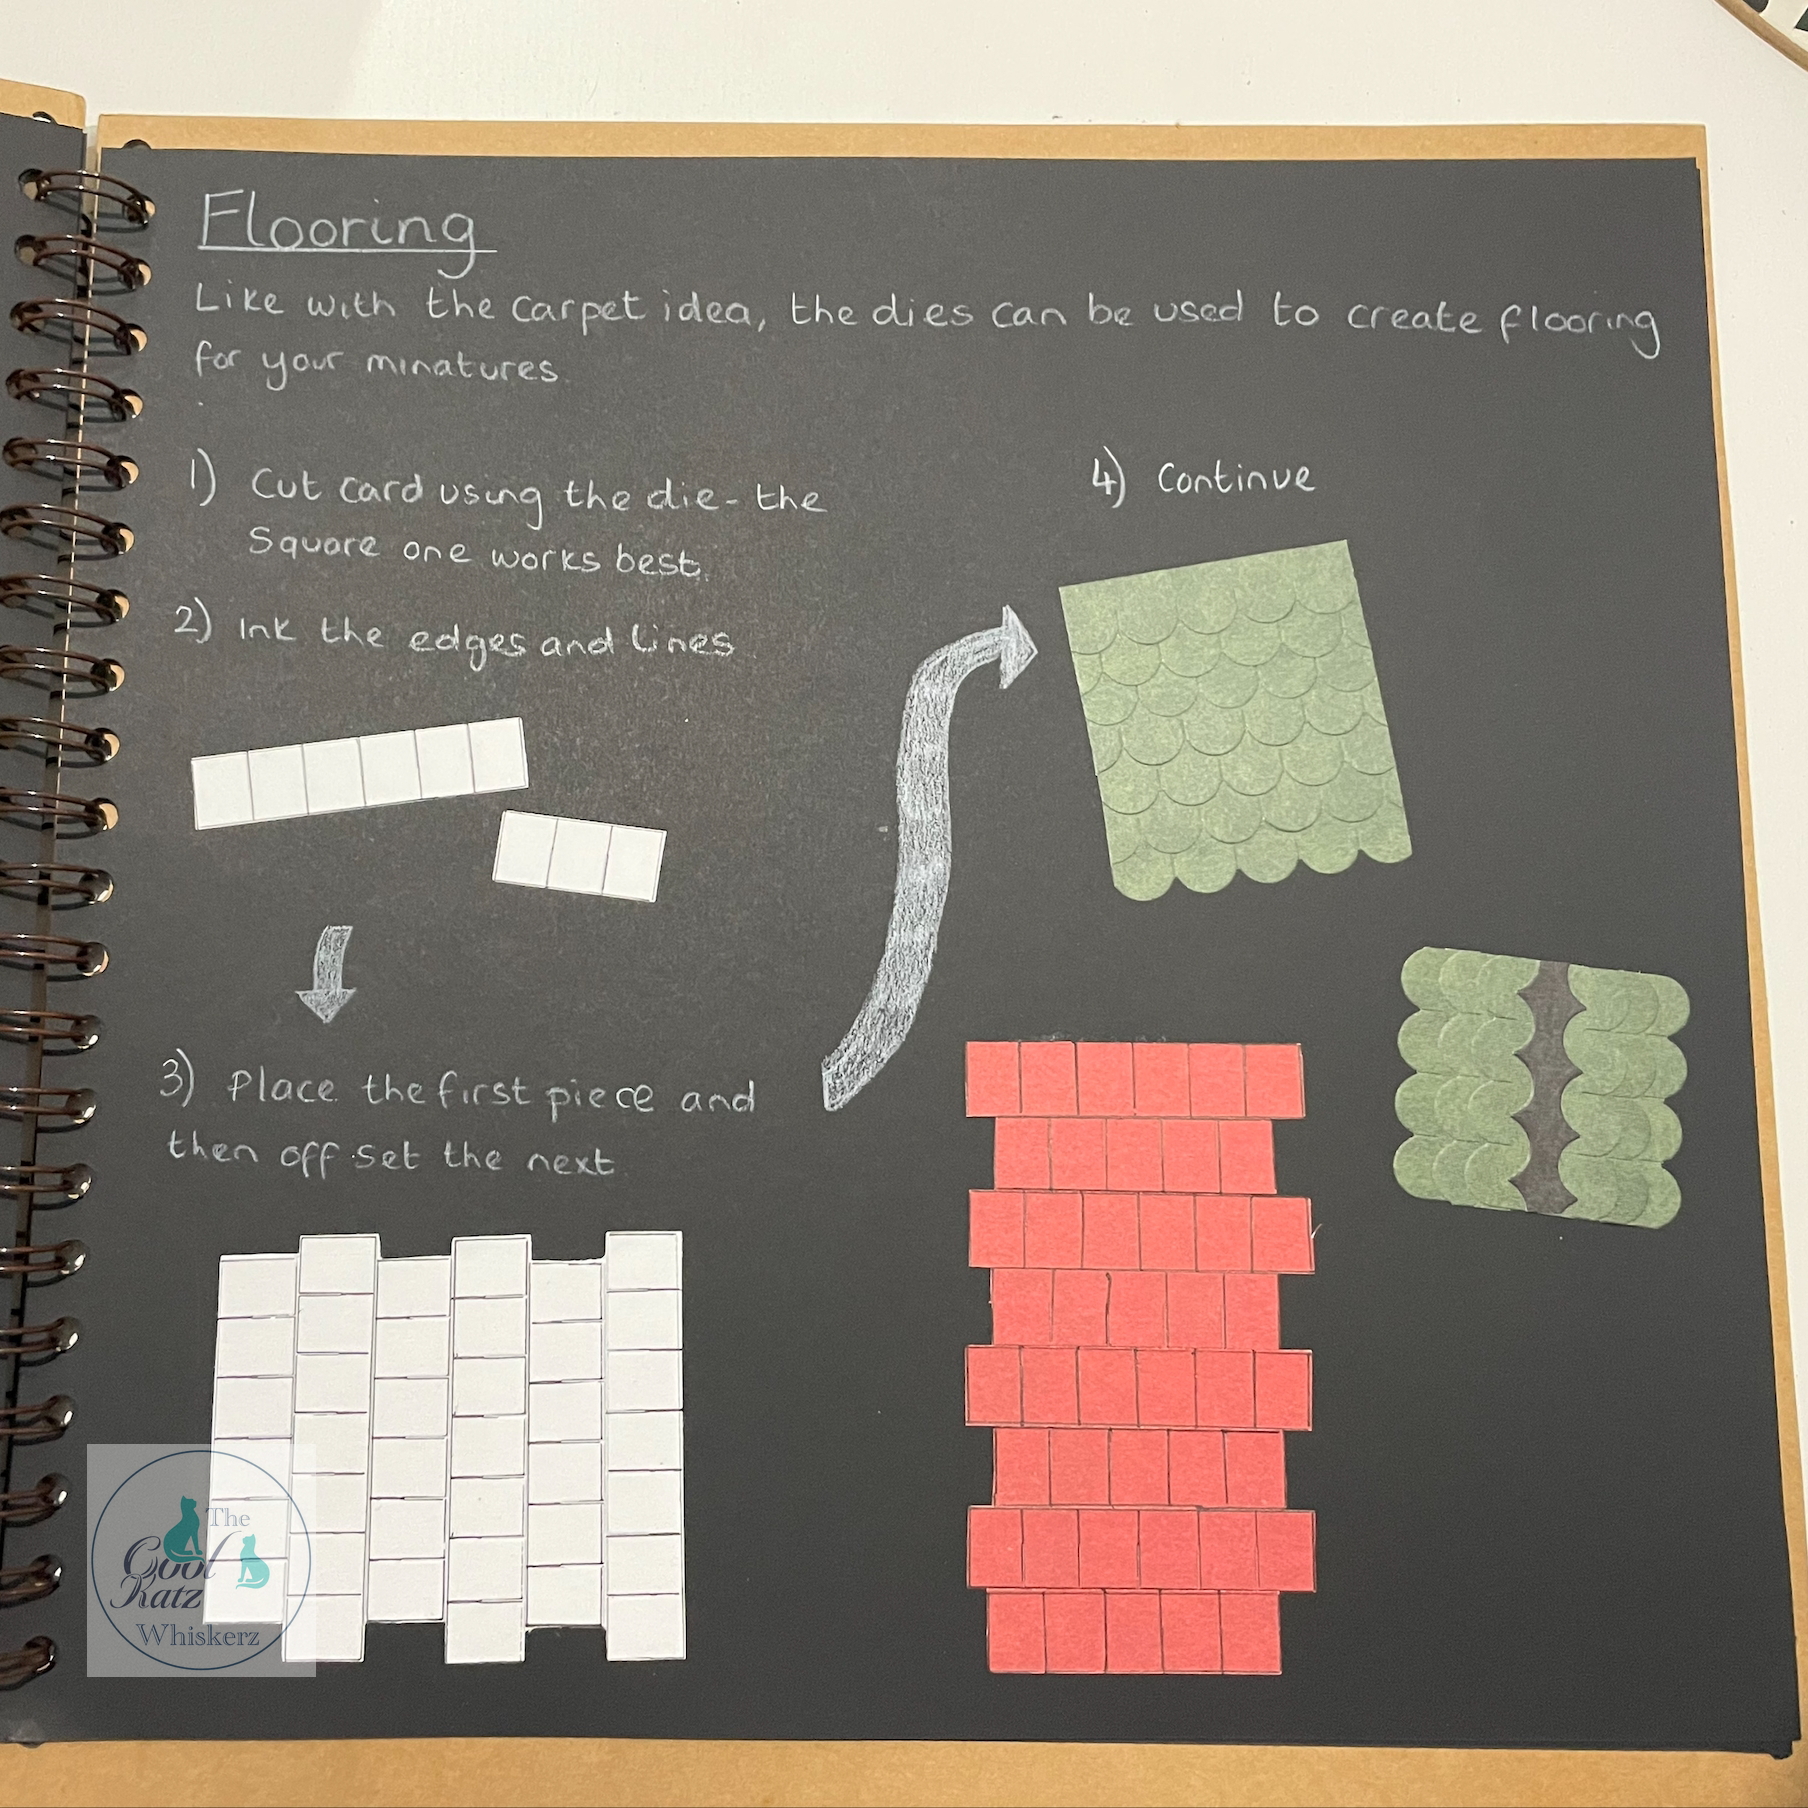 Flooring
Like with the carpet idea, the dies can be used to create flooring
for your minatures.
1) Cut card using the die - the
Square one works best.
2) Ink the edges and lines
3) Place the first piece and
then off set the next
4) Continue
The
Cool
Katz
Whiskerz